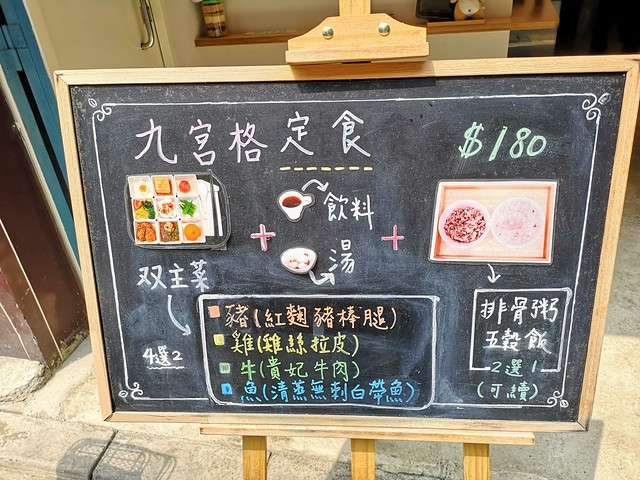 九宮格定食
$180
+
飲料
湯
+
双主菜
4選2
豬(紅麴豬棒腿)
雞(雞絲拉皮)
牛(貴妃牛肉)
魚(清蒸無刺白帶魚)
排骨粥
五穀飯
2選1
(可續)